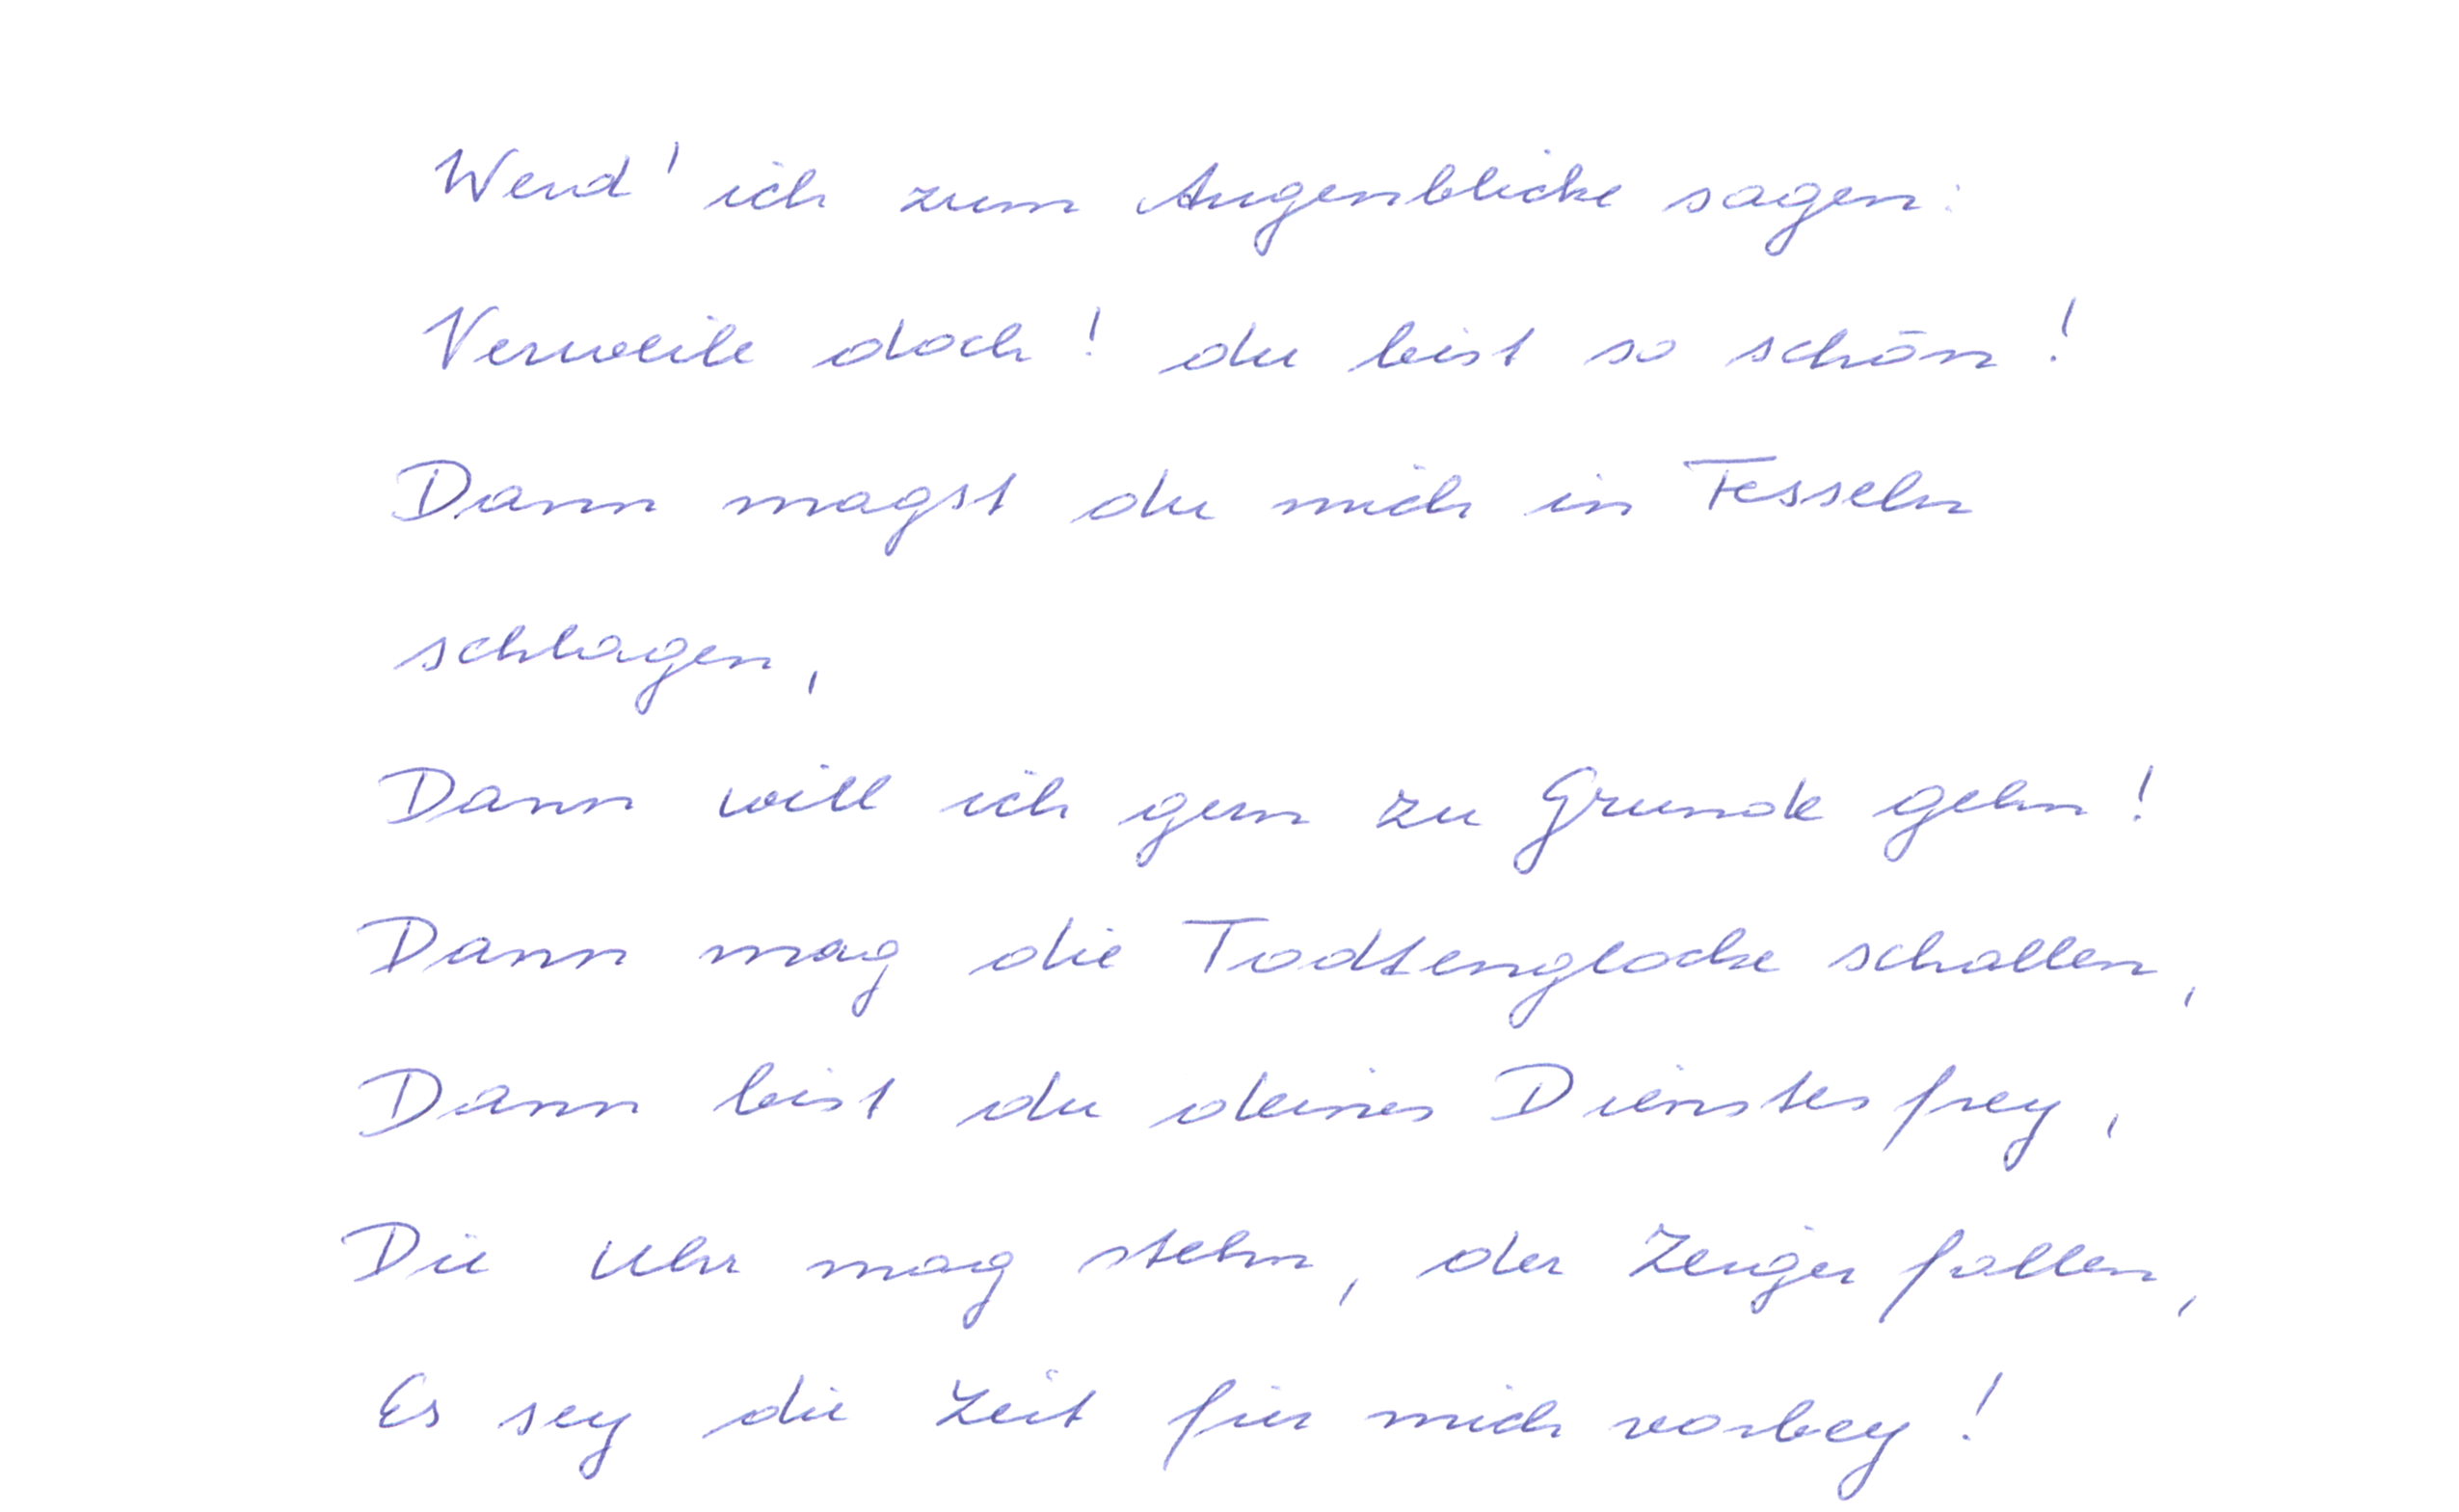 Werd' ich zum Augenblicke sagen:
Verweile doch! du bist so schön!
Dann magst du mich in Fesseln
schlagen,
Dann will ich gern zu Grunde gehn!
Dann mag die Todtenglocke schallen,
Dann bist du deines Dienstes frey,
Die Uhr mag stehn, der Zeiger fallen,
Es sey die Zeit für mich vorbey!